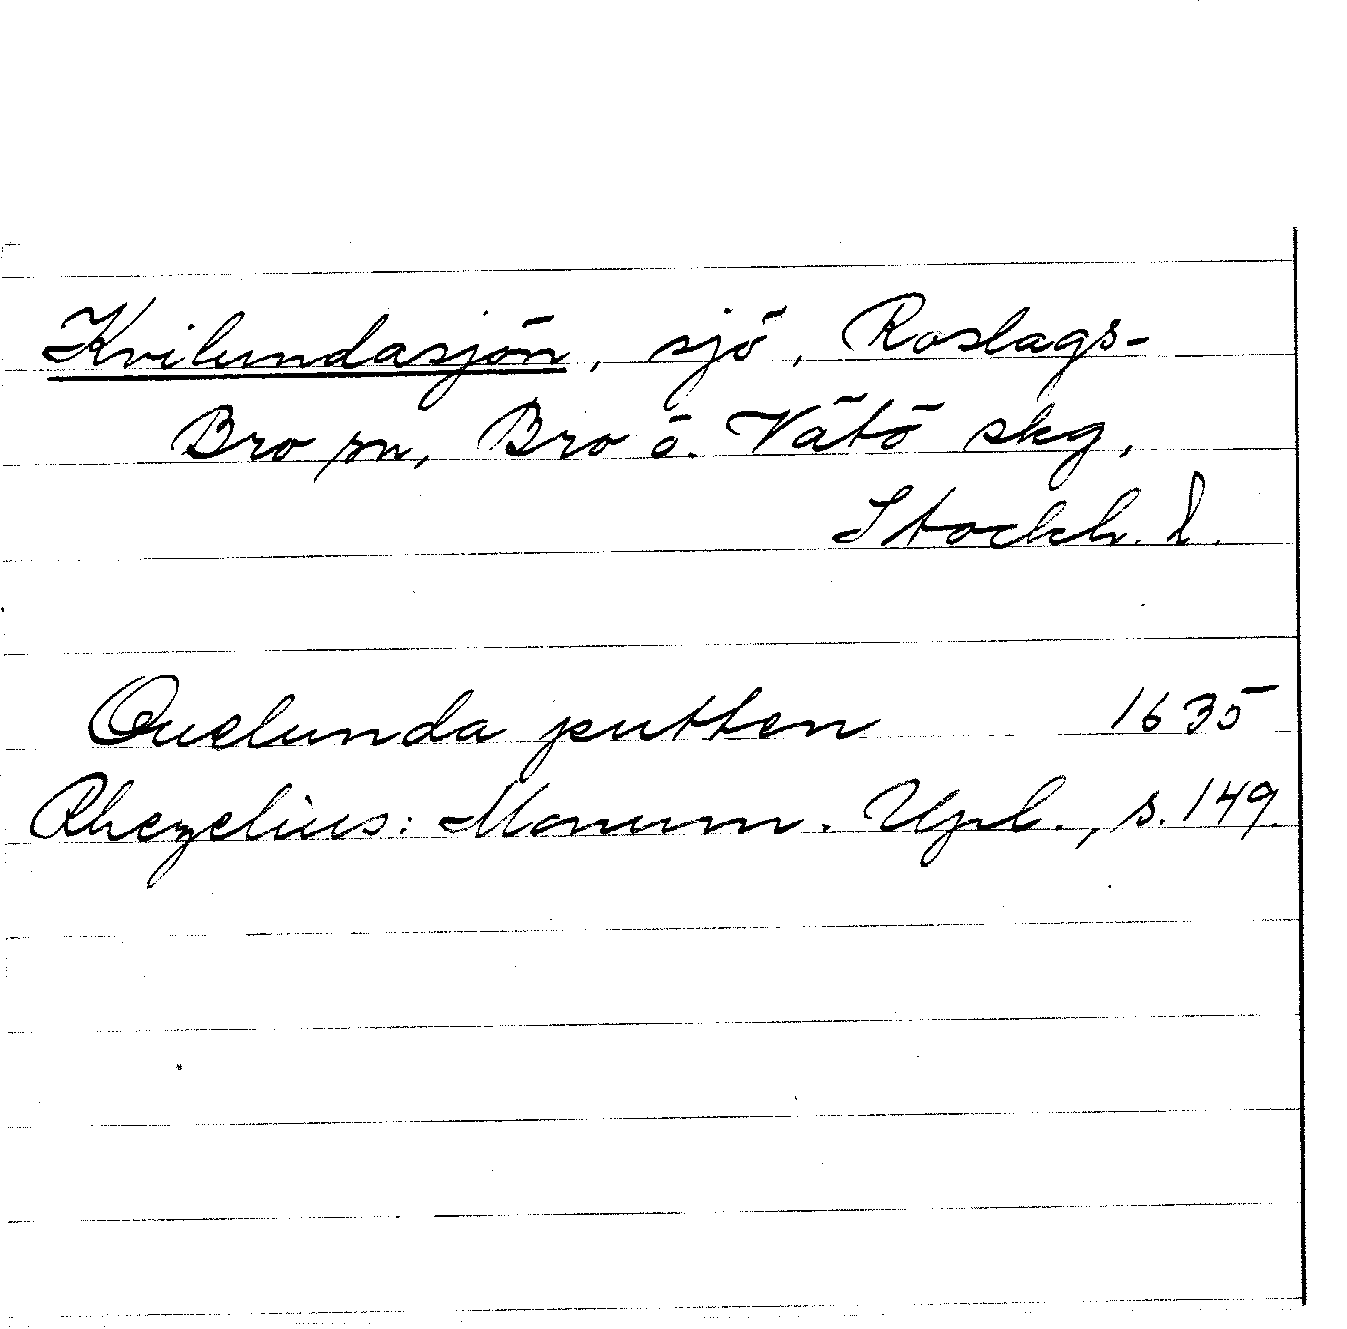 Kvilundasjön, sjö, Roslags-
Bro sn, Bro o. Vätö skg,
Stockh. l.
Quelunda putten 1635
Rhezelius: Monum. Upl., s. 149.